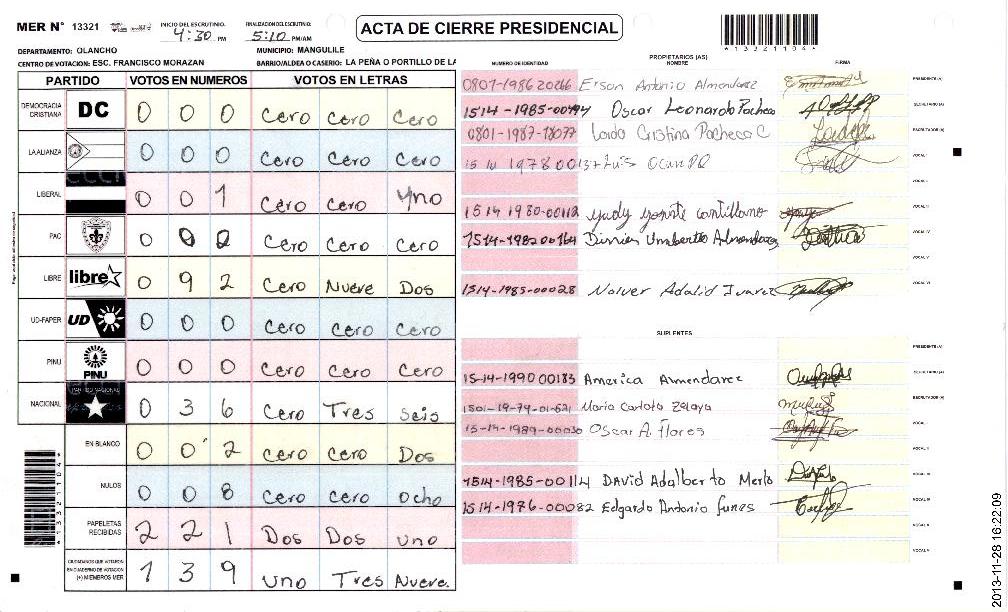 MER N° 13321
INICIO DEL ESCRUTINIO: 4:30 PM
FINALIZACION DEL ESCRUTINIO: 5:10 PM/AM
ACTA DE CIERRE PRESIDENCIAL
13321104
DEPARTAMENTO: OLANCHO
MUNICIPIO: MANGULILE
CENTRO DE VOTACION: ESC. FRANCISCO MORAZAN
BARRIO/ALDEA O CASERIO: LA PEÑA O PORTILLO DE LA
PARTIDO VOTOS EN NUMEROS VOTOS EN LETRAS
DEMOCRACIA CRISTIANA DC 0 0 0 Cero Cero Cero
LA ALIANZA 0 0 0 Cero Cero Cero
LIBERAL 0 0 1 Cero Cero Uno
PAC 0 0 0 Cero Cero Cero
LIBRE libre 0 9 2 Cero Nueve Dos
UD-FAPER UD 0 0 0 Cero Cero Cero
PINU PINU 0 0 0 Cero Cero Cero
NACIONAL PARTIDO NACIONAL 0 3 6 Cero Tres Seis
EN BLANCO 0 0 2 Cero Cero Dos
NULOS 0 0 8 Cero Cero Ocho
PAPELETAS RECIBIDAS 2 2 1 Dos Dos uno
CIUDADANOS QUE VOTARON EN CUADERNO DE VOTACION (+) MIEMBROS MER 1 3 9 Uno Tres Nueve.
PROPIETARIOS (AS)
NUMERO DE IDENTIDAD NOMBRE FIRMA
0807-1986 20266 Erson Antonio Almendarez PRESIDENTE (A)
1514-1985-00194 Oscar Leonardo Pacheco SECRETARIO (A)
0801-1987-18077 Cristina Pacheco C ESCRUTADOR (A)
1514 1978 00137 Luis VOCAL I
VOCAL II
1514 1980-00112 VOCAL III
1514-1982 00164 Umberto Almendarez VOCAL IV
VOCAL V
1514-1985-00028 Adalid Juarez VOCAL VI
SUPLENTES
PRESIDENTE (A)
1514-1990 00183 America Armendarez SECRETARIO (A)
1501-1979-01-621 Maria Carlota Zelaya ESCRUTADOR (A)
1514-1989-00030 Oscar A. Flores VOCAL I
VOCAL II
1514-1985-00114 David Adalberto Merlo VOCAL III
1514-1976-00082 Edgardo Antonio funes VOCAL IV
VOCAL V
VOCAL VI
2013-11-28 16:22:09